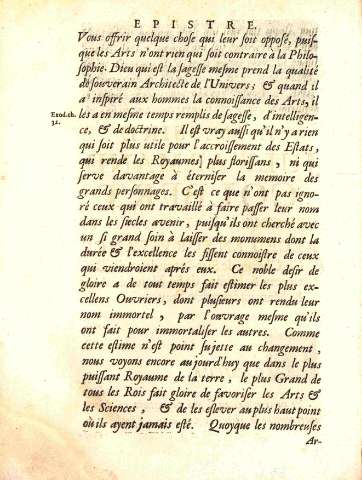 EPISTRE.
Vous offrir quelque chose qui leur soit opposé, puis-
que les Arts n'ont rien qui soit contraire à la Philo-
sophie. Dieu qui est la sagesse mesme prend la qualité
de souverain Architecte de l'Univers; & quand il
a inspiré aux hommes la connoissance des Arts, il
Exod. ch. 31.
les a en mesme temps remplis de sagesse, d'intelligen-
ce, & de doctrine. Il est vray aussi qu'il n'y a rien
qui soit plus utile pour l'accroissement des Estats,
qui rende les Royaumes plus florissans, ni qui
serve davantage à éterniser la memoire des
grands personnages. C'est ce que n'ont pas igno-
ré ceux qui ont travaillé à faire passer leur nom
dans les siecles avenir, puisqu'ils ont cherché avec
un si grand soin à laisser des monumens dont la
durée & l'excellence les fissent connoistre de ceux
qui viendroient aprés eux. Ce noble desir de
gloire a de tout temps fait estimer les plus ex-
cellens Ouvriers, dont plusieurs ont rendu leur
nom immortel, par l'ouvrage mesme qu'ils
ont fait pour immortaliser les autres. Comme
cette estime n'est point sujette au changement,
nous voyons encore aujourd'huy que dans le plus
puissant Royaume de la terre, le plus Grand de
tous les Rois fait gloire de favoriser les Arts &
les Sciences, & de les eslever au plus haut point
où ils ayent jamais esté. Quoyque les nombreuses
Ar-